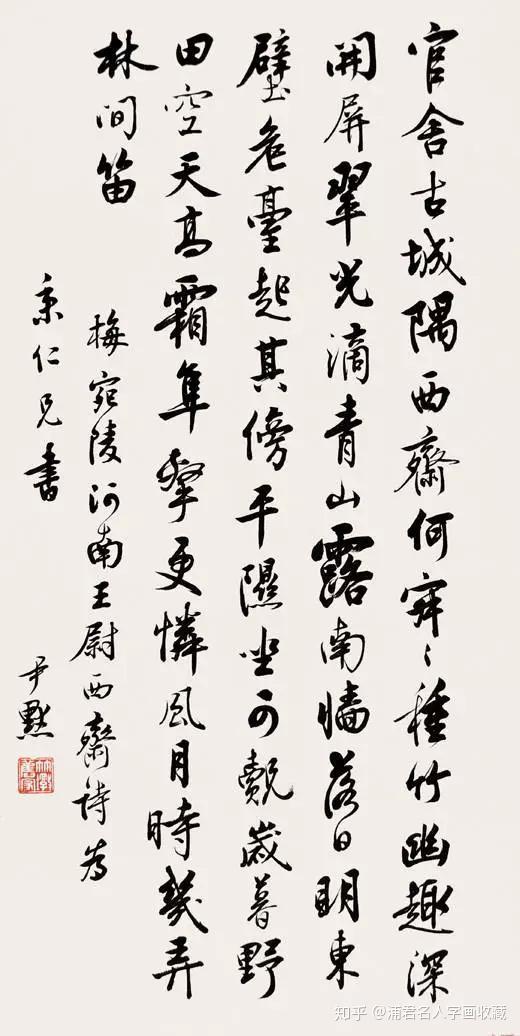 官舍古城隅西齋何寂〻種竹幽趣深
開屏翠光滴青山露南墻落日眀東
壁危臺起其傍平隰坐可覿歲暮野
田空天高霜隼擊更憐風月時幾弄
林間笛
梅宛陵河南王尉西齋詩為
秉仁兄書
尹默
知乎 @浦君名人字画收藏